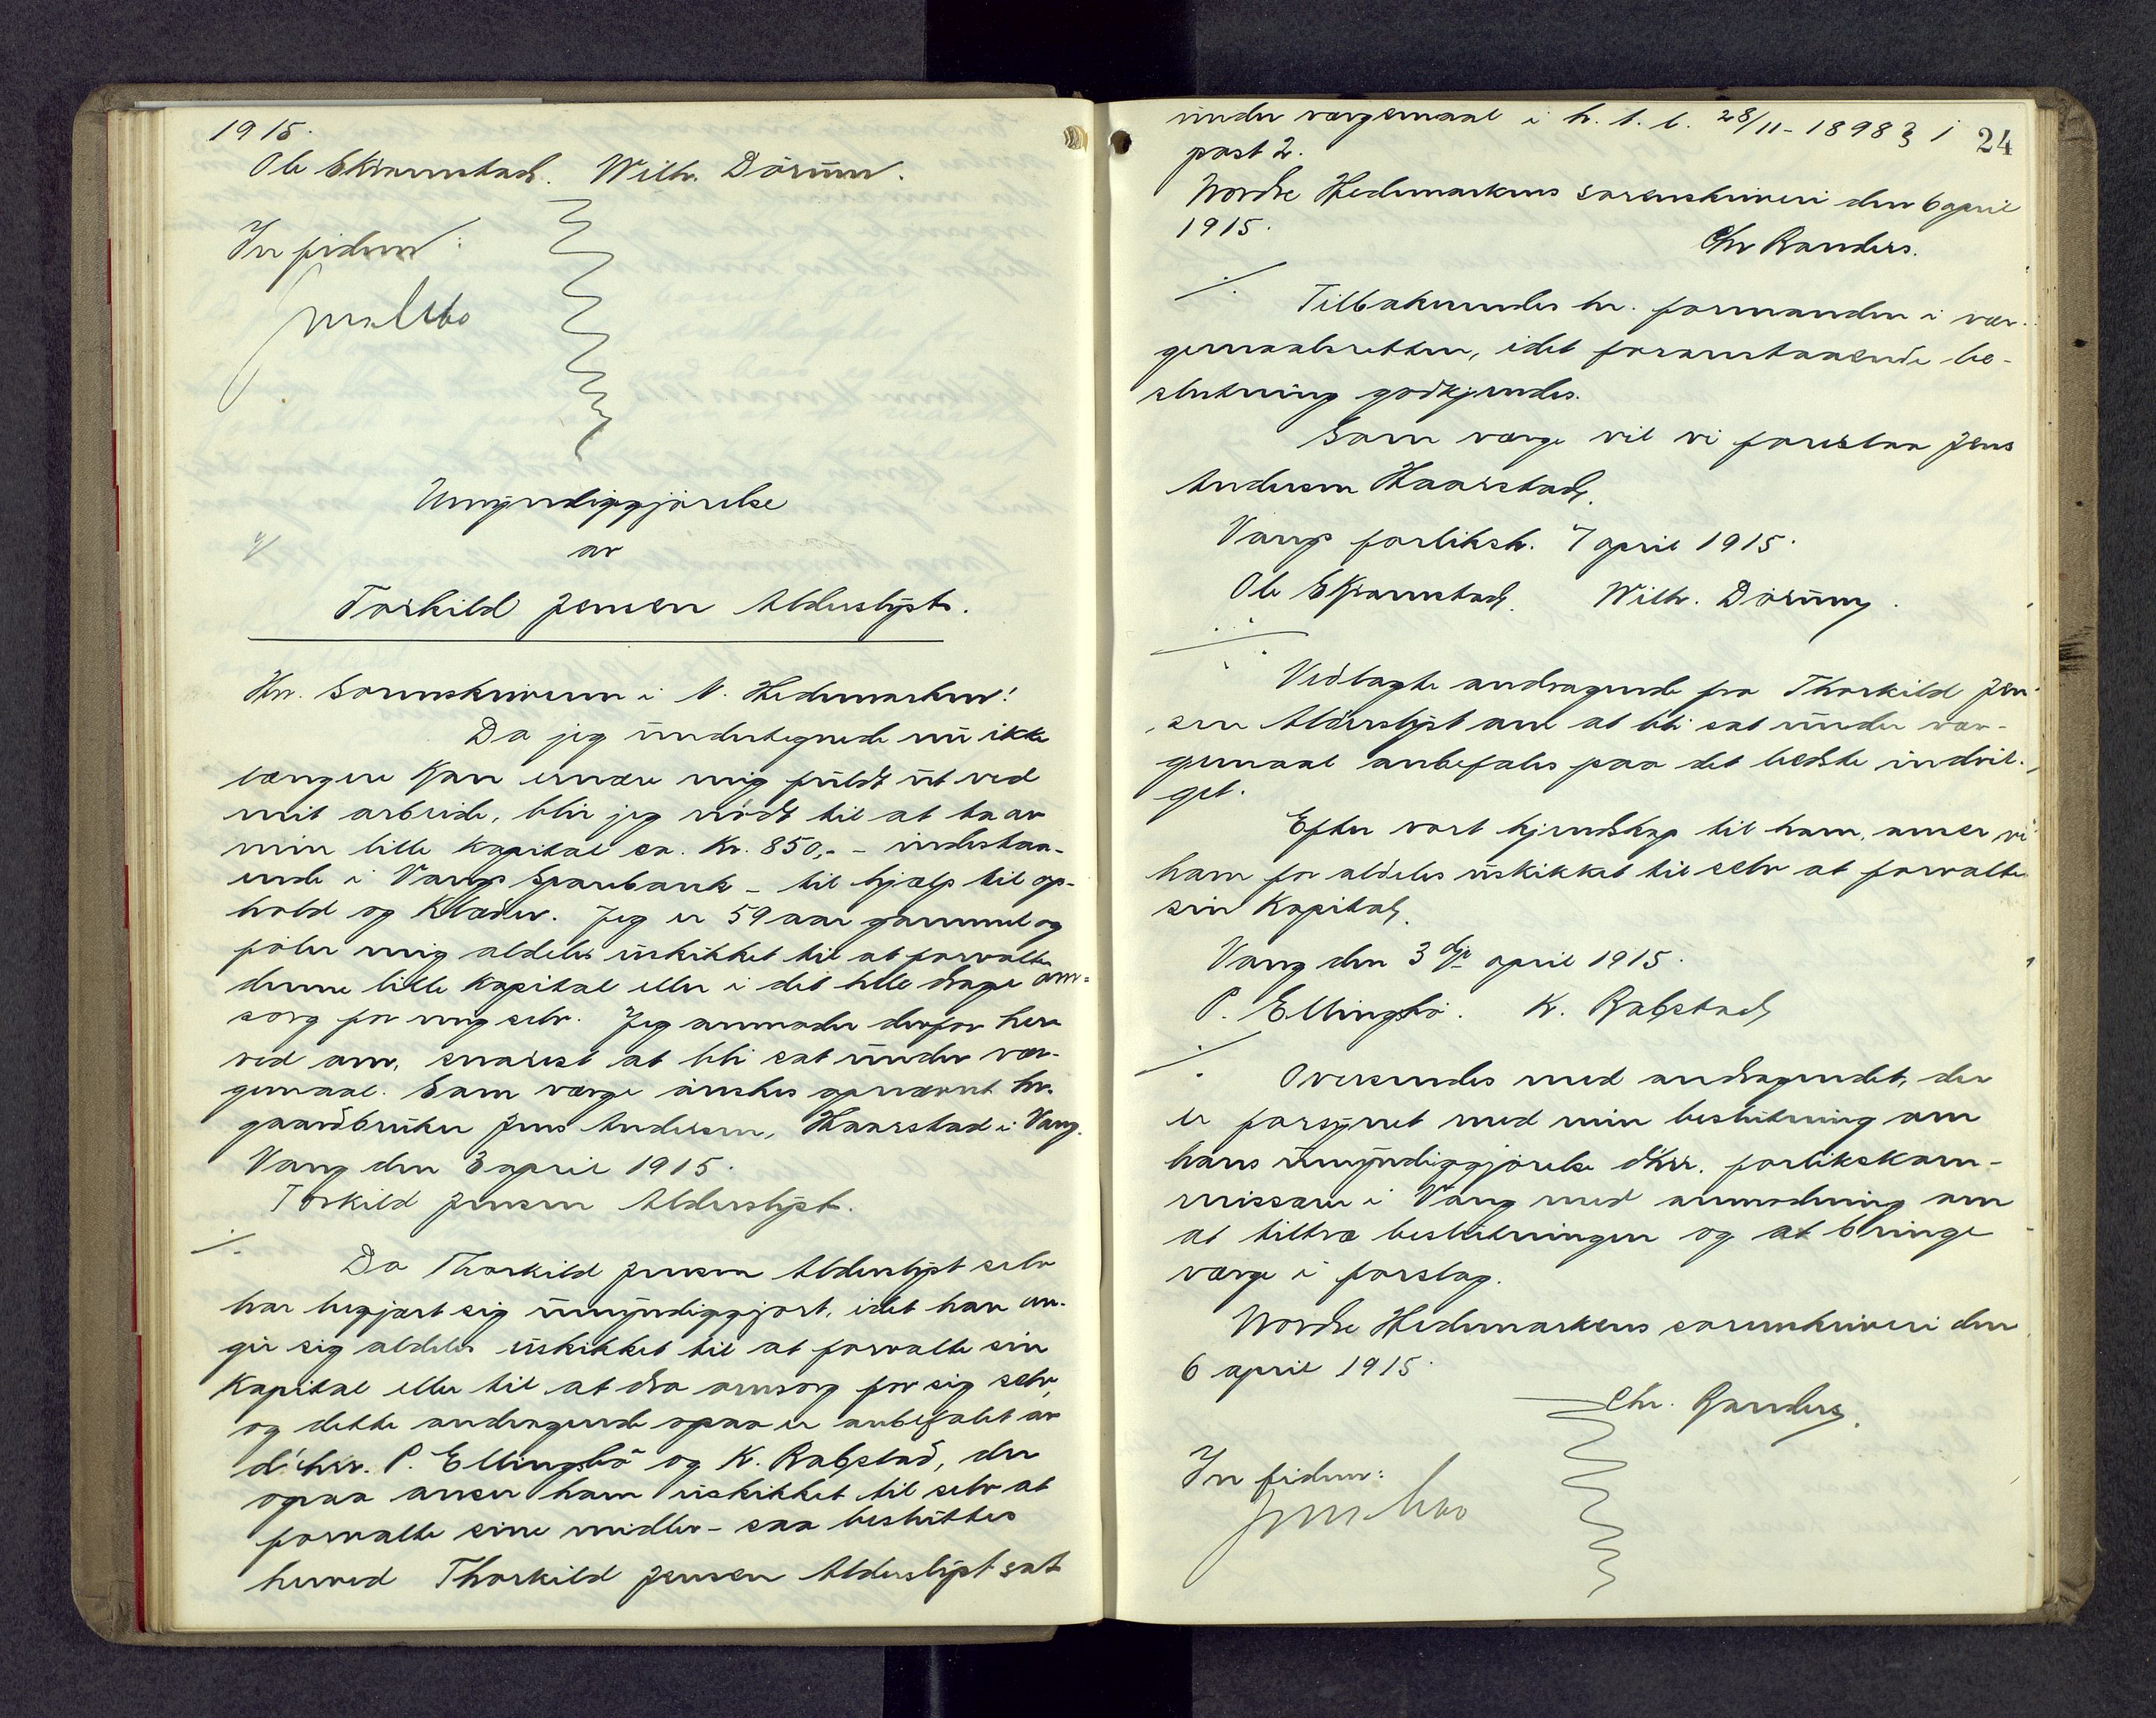 1915.
Ole Skramstad. Wilh. Dørum.
In fidem:
Umyndiggjørelse
av
Torkild Jensen Alderslyst.
Hr. Sorenskriveren i N. Hedemarken!
Da jeg undertegnede nu ikke
længere kan ernære mig fuldt ut ved
mit arbeide, blir jeg nødt til at ta av
min lille kapital ca. Kr. 850,- - indestaa-
ende i Vangs Sparebank - til hjælp til op-
hold og klæder. Jeg er 59 aar gammel og
føler mig aldeles uskikket til at forvalte
denne lille kapital eller i det hele drage om-
sorg for mig selv. Jeg anmoder derfor her
ved om, snarest at bli sat under vær-
gemaal. Som værge ønskes opnævnt hr.
gaardbruker Jens Andersen, Haarstad i Vang.
Vang den 3 april 1915.
Torkild Jensen Alderslyst.
./.
Da Thorkild Jensen Alderslyst selv
har begjært sig umyndiggjort, idet han an-
gir sig aldeles uskikket til at forvalte sin
kapital eller til at dra omsorg for sig selv,
og dette andragende ogsaa er anbefalet av
d'hrr. P. Ellingsbø og K. Rabstad, der
ogsaa anser ham uskikket til selv at
forvalte sine midler - saa besluttes
herved Thorkild Jensen Alderslyst sat
24
under værgemaal i h. t. l. 28/11-1898 § 1
post 2.
Nordre Hedemarkens sorenskriveri den 6 april
1915.
Chr Randers.
./.
Tilbakesendes hr. formanden i vær-
gemaalsretten, idet foranstaaende be-
slutning godkjendes.
Som værge vil vi foreslaa Jens
Andersen Haarstad.
Vangs forliksk. 7 april 1915.
Ole Skramstad. Wilh. Dørum.
./.
Vedlagte andragende fra Thorkild Jen-
sen Alderslyst om at bli sat under vær-
gemaal anbefales paa det bedste indvil-
get.
Efter vort kjendskap til ham, anser vi
ham for aldeles uskikket til selv at forvalte
sin kapital.
Vang den 3dje april 1915.
P. Ellingsbø. K. Rabstad
./.
Oversendes med andragendet, der
er forsynet med min beslutning om
hans umyndiggjørelse d'hrr. forlikskom-
missærer i Vang med anmodning om
at tiltræ beslutningen og at bringe
værge i forslag.
Nordre Hedemarkens sorenskriveri den
6 april 1915.
Chr. Randers.
In fidem: